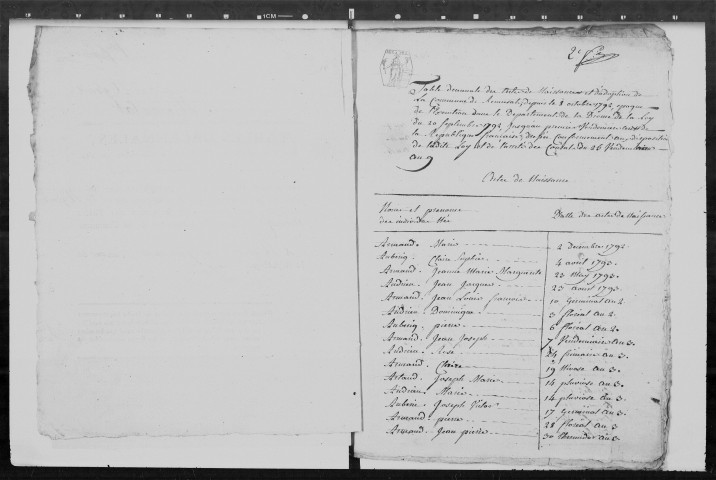 1CM
2e
Table decennale des actes de Naissances et d'adoption de
La Commune de Remusat, depuis le 8 octobre 1792, epoque
de l'Execution dans le Departement de la Drome de la Loy
du 20 Septembre 1792 Jusqu'au premier Vendemiaire an
de la Republique française, Conformement aux dispositions
de ladite Loy et de l'arreté des Consuls du 25 Vendemiaire
an 9
Actes de Naissance
Noms et prenoms
des individus Nés
Datte des actes de Naissance
Armand Marie 2 Decembre 1792
Aubery Claire 4 avril 1793.
Armand Jeanne Marie Margueritte 23 May 1793.
Audrien Jean Jacques 23 aout 1793.
Armand Jean Louis françois 10 Germinal an 2.
Audrien Dominique 3 floreal an 2.
Aubery pierre 6 floreal an 2.
Armand Jean Joseph 7 Vendemiaire an 3.
Audrien Rose 24 frimaire an 3.
Armand Claire 19 Nivose an 3.
Artaud Joseph Marie 14 pluviose an 3.
Audrien Marie 14 pluviose an 3.
Auberic Joseph Victor 17 Germinal an 3.
Armand pierre 28 floreal an 3.
Armand Jean pierre 30 Thermidor an 3.